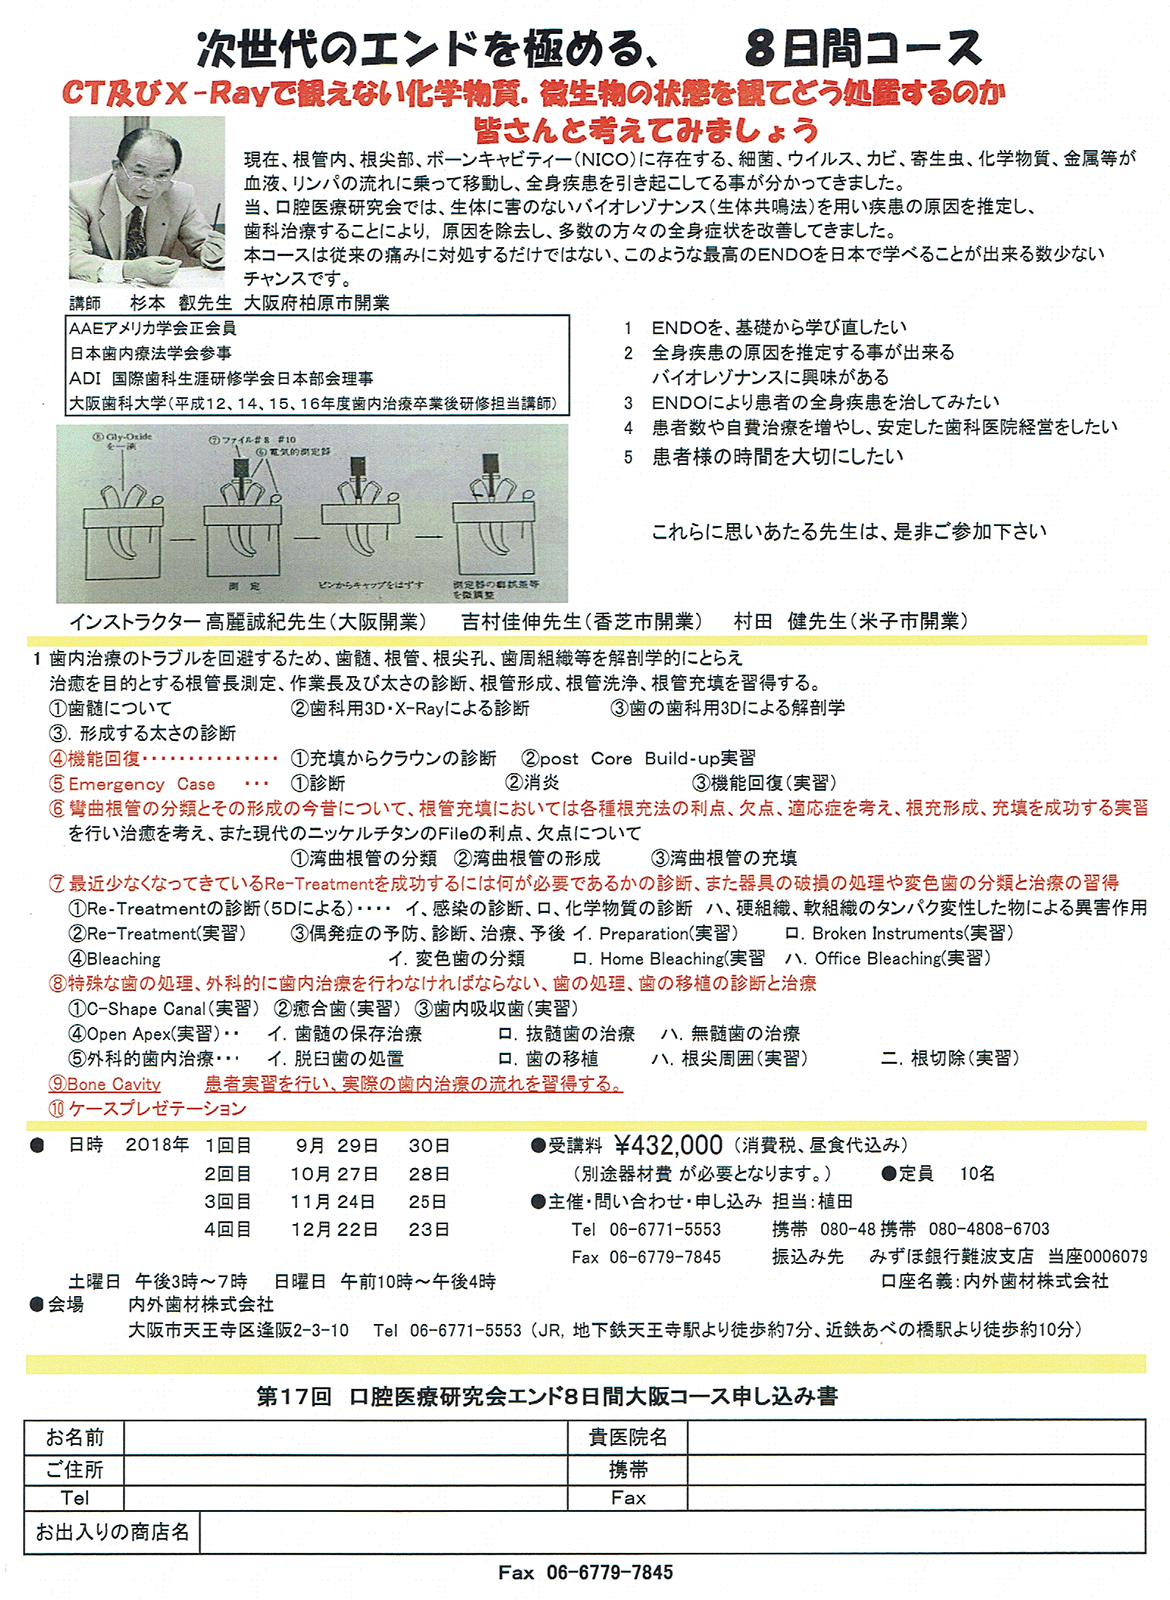 次世代のエンドを極める、　8日間コース
CT及びX-Rayで観えない化学物質．微生物の状態を観てどう処置するのか
皆さんと考えてみましょう
現在、根管内、根尖部、ボーンキャビティー（NICO）に存在する、細菌、ウイルス、カビ、寄生虫、化学物質、金属等が
血液、リンパの流れに乗って移動し、全身疾患を引き起こしてる事が分かってきました。
当、口腔医療研究会では、生体に害のないバイオレゾナンス（生体共鳴法）を用い疾患の原因を推定し、
歯科治療することにより，原因を除去し、多数の方々の全身症状を改善してきました。
本コースは従来の痛みに対処するだけではない、このような最高のENDOを日本で学べることが出来る数少ない
チャンスです。
講師　杉本　叡先生　大阪府柏原市開業
AAEアメリカ学会正会員
日本歯内療法学会参事
ADI　国際歯科生涯研修学会日本部会理事
大阪歯科大学（平成12、14、15、16年度歯内治療卒業後研修担当講師）
1　ENDOを、基礎から学び直したい
2　全身疾患の原因を推定する事が出来る
バイオレゾナンスに興味がある
3　ENDOにより患者の全身疾患を治してみたい
4　患者数や自費治療を増やし、安定した歯科医院経営をしたい
5　患者様の時間を大切にしたい
これらに思いあたる先生は、是非ご参加下さい
⑧Gly-Oxide
を一滴
⑦ファイル#8　#10
⑥電気的測定器
測　定
ピンからキャップをはずす
測定器の
を微調整
インストラクター 高麗誠紀先生（大阪開業）　吉村佳伸先生（香芝市開業）　村田　健先生（米子市開業）
1 歯内治療のトラブルを回避するため、歯髄、根管、根尖孔、歯周組織等を解剖学的にとらえ
治癒を目的とする根管長測定、作業長及び太さの診断、根管形成、根管洗浄、根管充填を習得する。
①歯髄について　②歯科用3D・X-Rayによる診断　③歯の歯科用3Dによる解剖学
③．形成する太さの診断
④機能回復・・・・・・・・・・・・・・・　①充填からクラウンの診断　②post　Core　Build-up実習
⑤Emergency　Case　・・・　①診断　②消炎　③機能回復（実習）
⑥彎曲根管の分類とその形成の今昔について、根管充填においては各種根充法の利点、欠点、適応症を考え、根充形成、充填を成功する実習
を行い治癒を考え、また現代のニッケルチタンのFileの利点、欠点について
①湾曲根管の分類　②湾曲根管の形成　③湾曲根管の充填
⑦最近少なくなってきているRe-Treatmentを成功するには何が必要であるかの診断、また器具の破損の処理や変色歯の分類と治療の習得
①Re-Treatmentの診断（5Dによる）・・・・　イ、感染の診断、ロ、化学物質の診断　ハ、硬組織、軟組織のタンパク変性した物による異害作用
②Re-Treatment(実習）　③偶発症の予防、診断、治療、予後　イ．Preparation(実習）　ロ．Broken Instruments(実習）
④Bleaching　イ．変色歯の分類　ロ．Home Bleaching(実習　ハ．Office Bleaching(実習）
⑧特殊な歯の処理、外科的に歯内治療を行わなければならない、歯の処理、歯の移植の診断と治療
①C-Shape Canal(実習）　②癒合歯（実習）　③歯内吸収歯（実習）
④Open Apex(実習）・・　イ．歯髄の保存治療　ロ．抜髄歯の治療　ハ．無髄歯の治療
⑤外科的歯内治療・・・　イ．脱臼歯の処置　ロ．歯の移植　ハ．根尖周囲（実習）　ニ．根切除（実習）
⑨Bone Cavity　患者実習を行い、実際の歯内治療の流れを習得する。
⑩ケースプレゼテーション
●　日時　2018年　1回目　9月 29日　30日
2回目　10月 27日　28日
3回目　11月 24日　25日
4回目　12月 22日　23日
土曜日　午後3時～7時　日曜日　午前10時～午後4時
●受講料　¥432,000　（消費税、昼食代込み）
（別途器材費 が必要となります。）　●定員　10名
●主催・問い合わせ・申し込み　担当：植田
Tel　06-6771-5553　携帯　080-48 携帯　080-4808-6703
Fax　06-6779-7845　振込み先　みずほ銀行難波支店　当座0006079
口座名義：内外歯材株式会社
●会場　内外歯材株式会社
大阪市天王寺区逢阪2-3-10　Tel　06-6771-5553　（JR，地下鉄天王寺駅より徒歩約7分、近鉄あべの橋駅より徒歩約10分）
第17回　口腔医療研究会エンド8日間大阪コース申し込み書
お名前　貴医院名
ご住所　携帯
Tel　Fax
お出入りの商店名
Fax　06-6779-7845